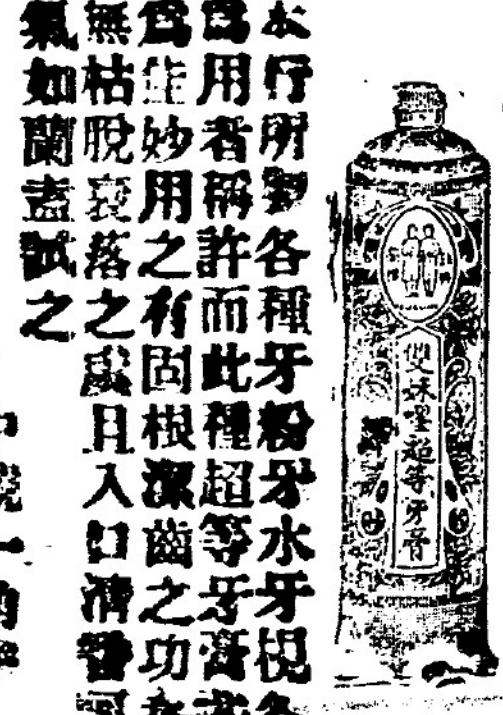 本行所製各種牙粉牙水牙梘各
爲用者稱許而此種超等牙膏尤
爲佳妙用之有固根潔齒之功
無枯脫衰落之虞且入口清香
氣如蘭盍試之
雙妹嘜超等牙膏